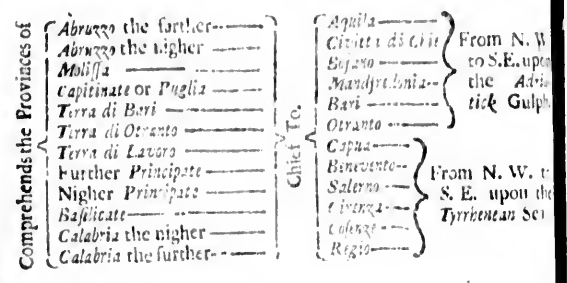 Comprehends the Provinces of
Abruzzo the farther
Abruzzo the nigher
Molissa
Capitinate or Puglia
Terra di Bari
Terra di Otranto
Terra di Lavoro
Further Principate
Nigher Principate
Basilicate
Calabria the nigher
Calabria the further
Chief To.
Aquila
Civitta di
Bojano
Manfredonia
Bari
Otranto
Capua
Benevento
Salerno
Cirenza
Cosenze
Regio
From N. W
to S.E. upon
the Adria
tick Gulph
From N. W. t
S. E. upon the
Tyrrhenean Sea